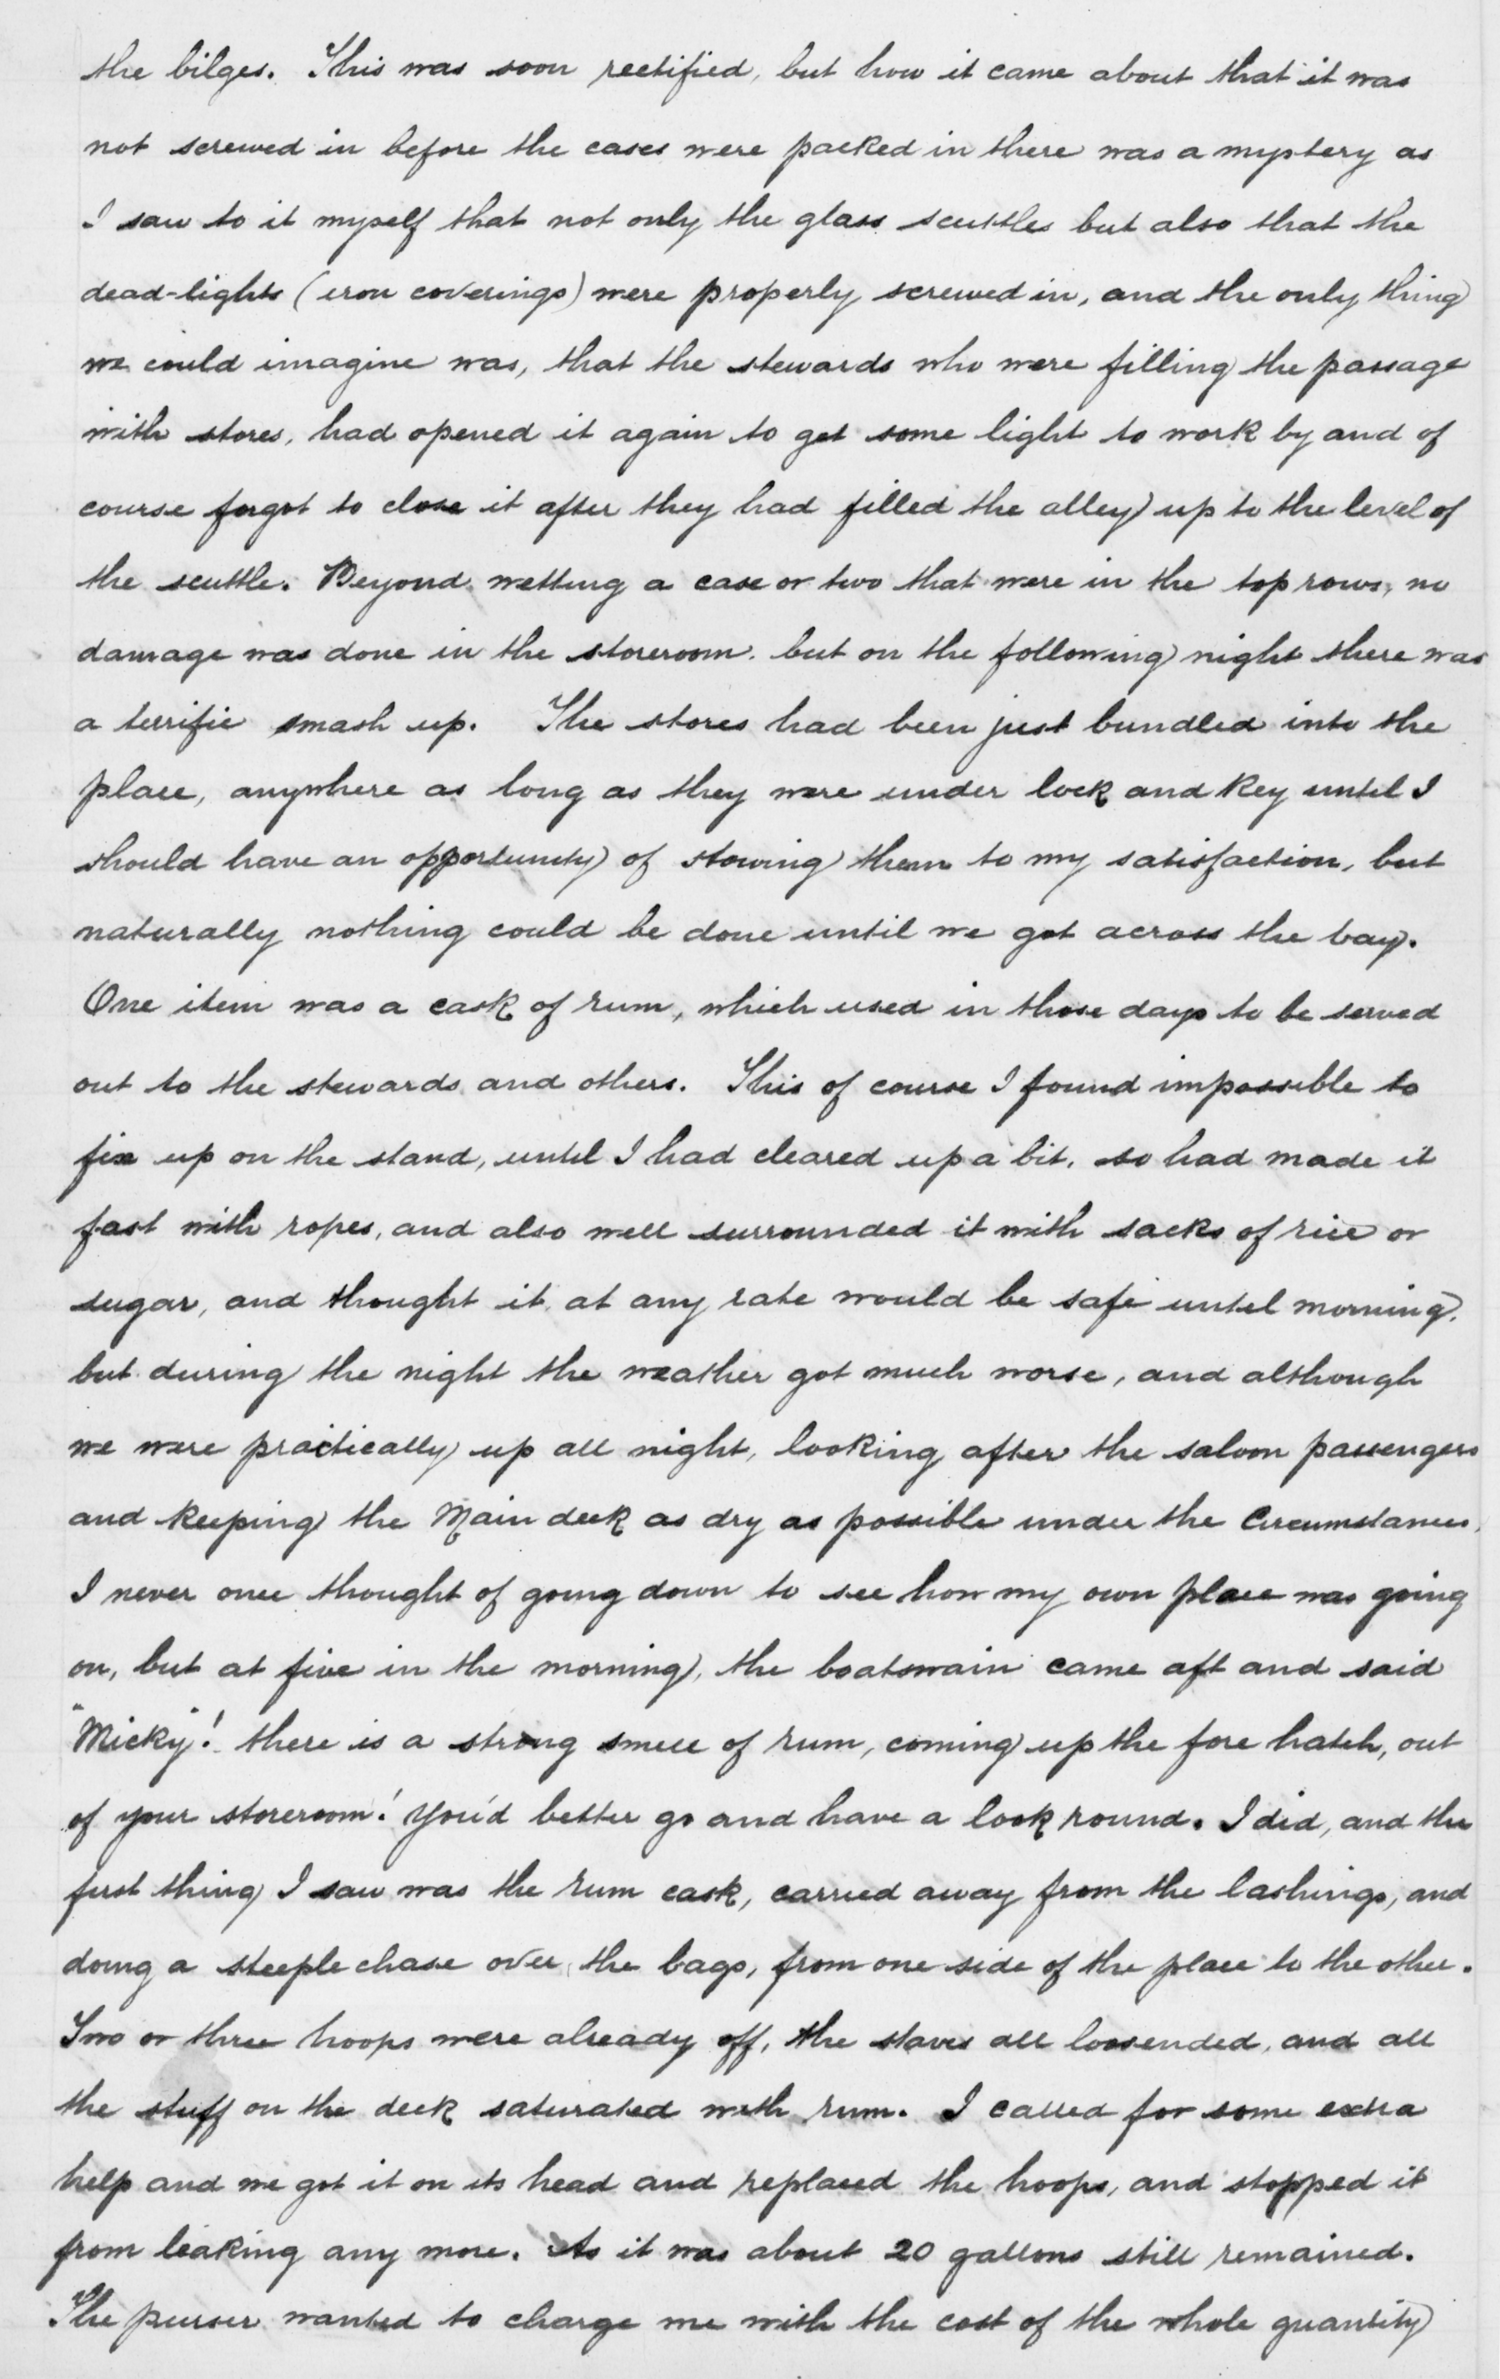 the bilges. This was soon rectified, but how it came about that it was
not screwed in before the cases were packed in there was a mystery as
I saw to it myself that not only the glass scuttles but also that the
dead-lights (iron coverings) were properly screwed in, and the only thing
we could imagine was, that the stewards who were filling the passage
with stores, had opened it again to get some light to work by and of
course forgot to close it after they had filled the alley up to the level of
the scuttle. Beyond wetting a case or two that were in the top rows, no
damage was done in the storeroom. but on the following night there was
a terrific smash up. The stores had been just bundled into the
place, anywhere as long as they were under lock and key until I
should have an opportunity of stowing them to my satisfaction, but
naturally nothing could be done until we got across the bay.
One item was a cask of rum, which used in those days to be served
out to the stewards and others. This of course I found impossible to
fix up on the stand, until I had cleared up a bit, so had made it
fast with ropes, and also well surrounded it with sacks of rice or
sugar, and thought it at any rate would be safe until morning,
but during the night the weather got much worse, and although
we were practically up all night, looking after the saloon passengers
and keeping the Main deck as dry as possible under the Circumstances,
I never once thought of going down to see how my own place was going
on, but at five in the morning, the boatswain came aft and said
"Micky"! there is a strong smell of rum, coming up the fore hatch, out
of your storeroom! You'd better go and have a look round. I did, and the
first thing I saw was the rum cask, carried away from the lashings, and
doing a steeple chase over the bags, from one side of the place to the other.
Two or three hoops were already off, the staves all loosended, and all
the stuff on the deck saturated with rum. I called for some extra
help and we got it on its head and replaced the hoops, and stopped it
from leaking any more. As it was about 20 gallons still remained.
The purser wanted to charge me with the cost of the whole quantity